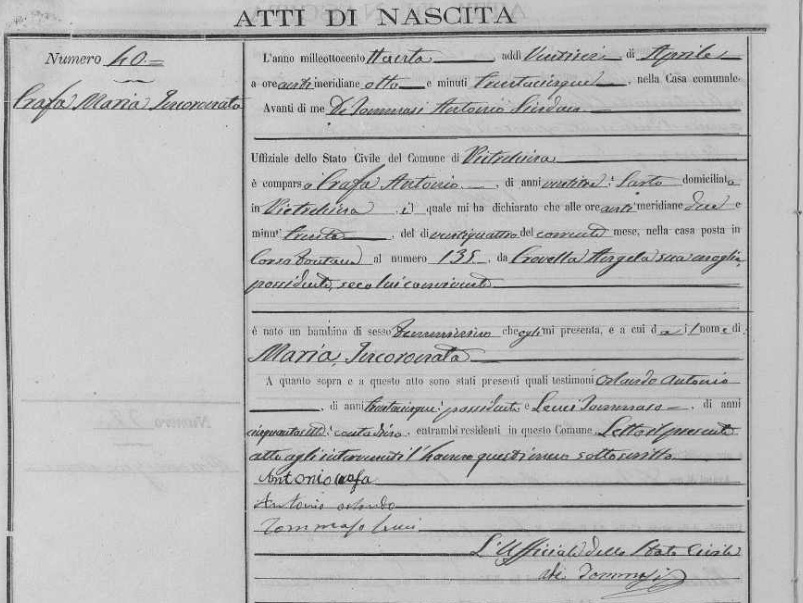 ATTI DI NASCITA
Numero 40.=
Crafa Maria Incoronata
L'anno milleottocento addì di Aprile
a ore antimeridiane otto e minuti trentacinque, nella Casa comunale.
Avanti di me De Tommasi Antonio Sindaco
Uffiziale dello Stato Civile del Comune di
è comparso Crafa Antonio, di anni ventitre: Sarto domiciliato
in, il quale mi ha dichiarato che alle ore antimeridiane due e
minuti trenta, del dì ventiquattro del corrente mese, nella casa posta in
Corso Fontana al numero 135, da Crovella Angela sua moglie,
possidente, seco lui convivente
è nato un bambino di sesso femminino che egli mi presenta, e a cui dà il nome di
Maria, Incoronata
A quanto sopra e a questo atto sono stati presenti quali testimoni Orlando Antonio
, di anni trentacinque: possidente e Leuci Tommaso, di anni
cinquantasette: contadino, entrambi residenti in questo Comune. Letto il presente
atto agli intervenuti l'hanno questi meco sottoscritto
Antonio Crafa
Antonio Orlando
Tommaso Leuci
L'Uffiziale dello Stato Civile
De Tommasi
Numero